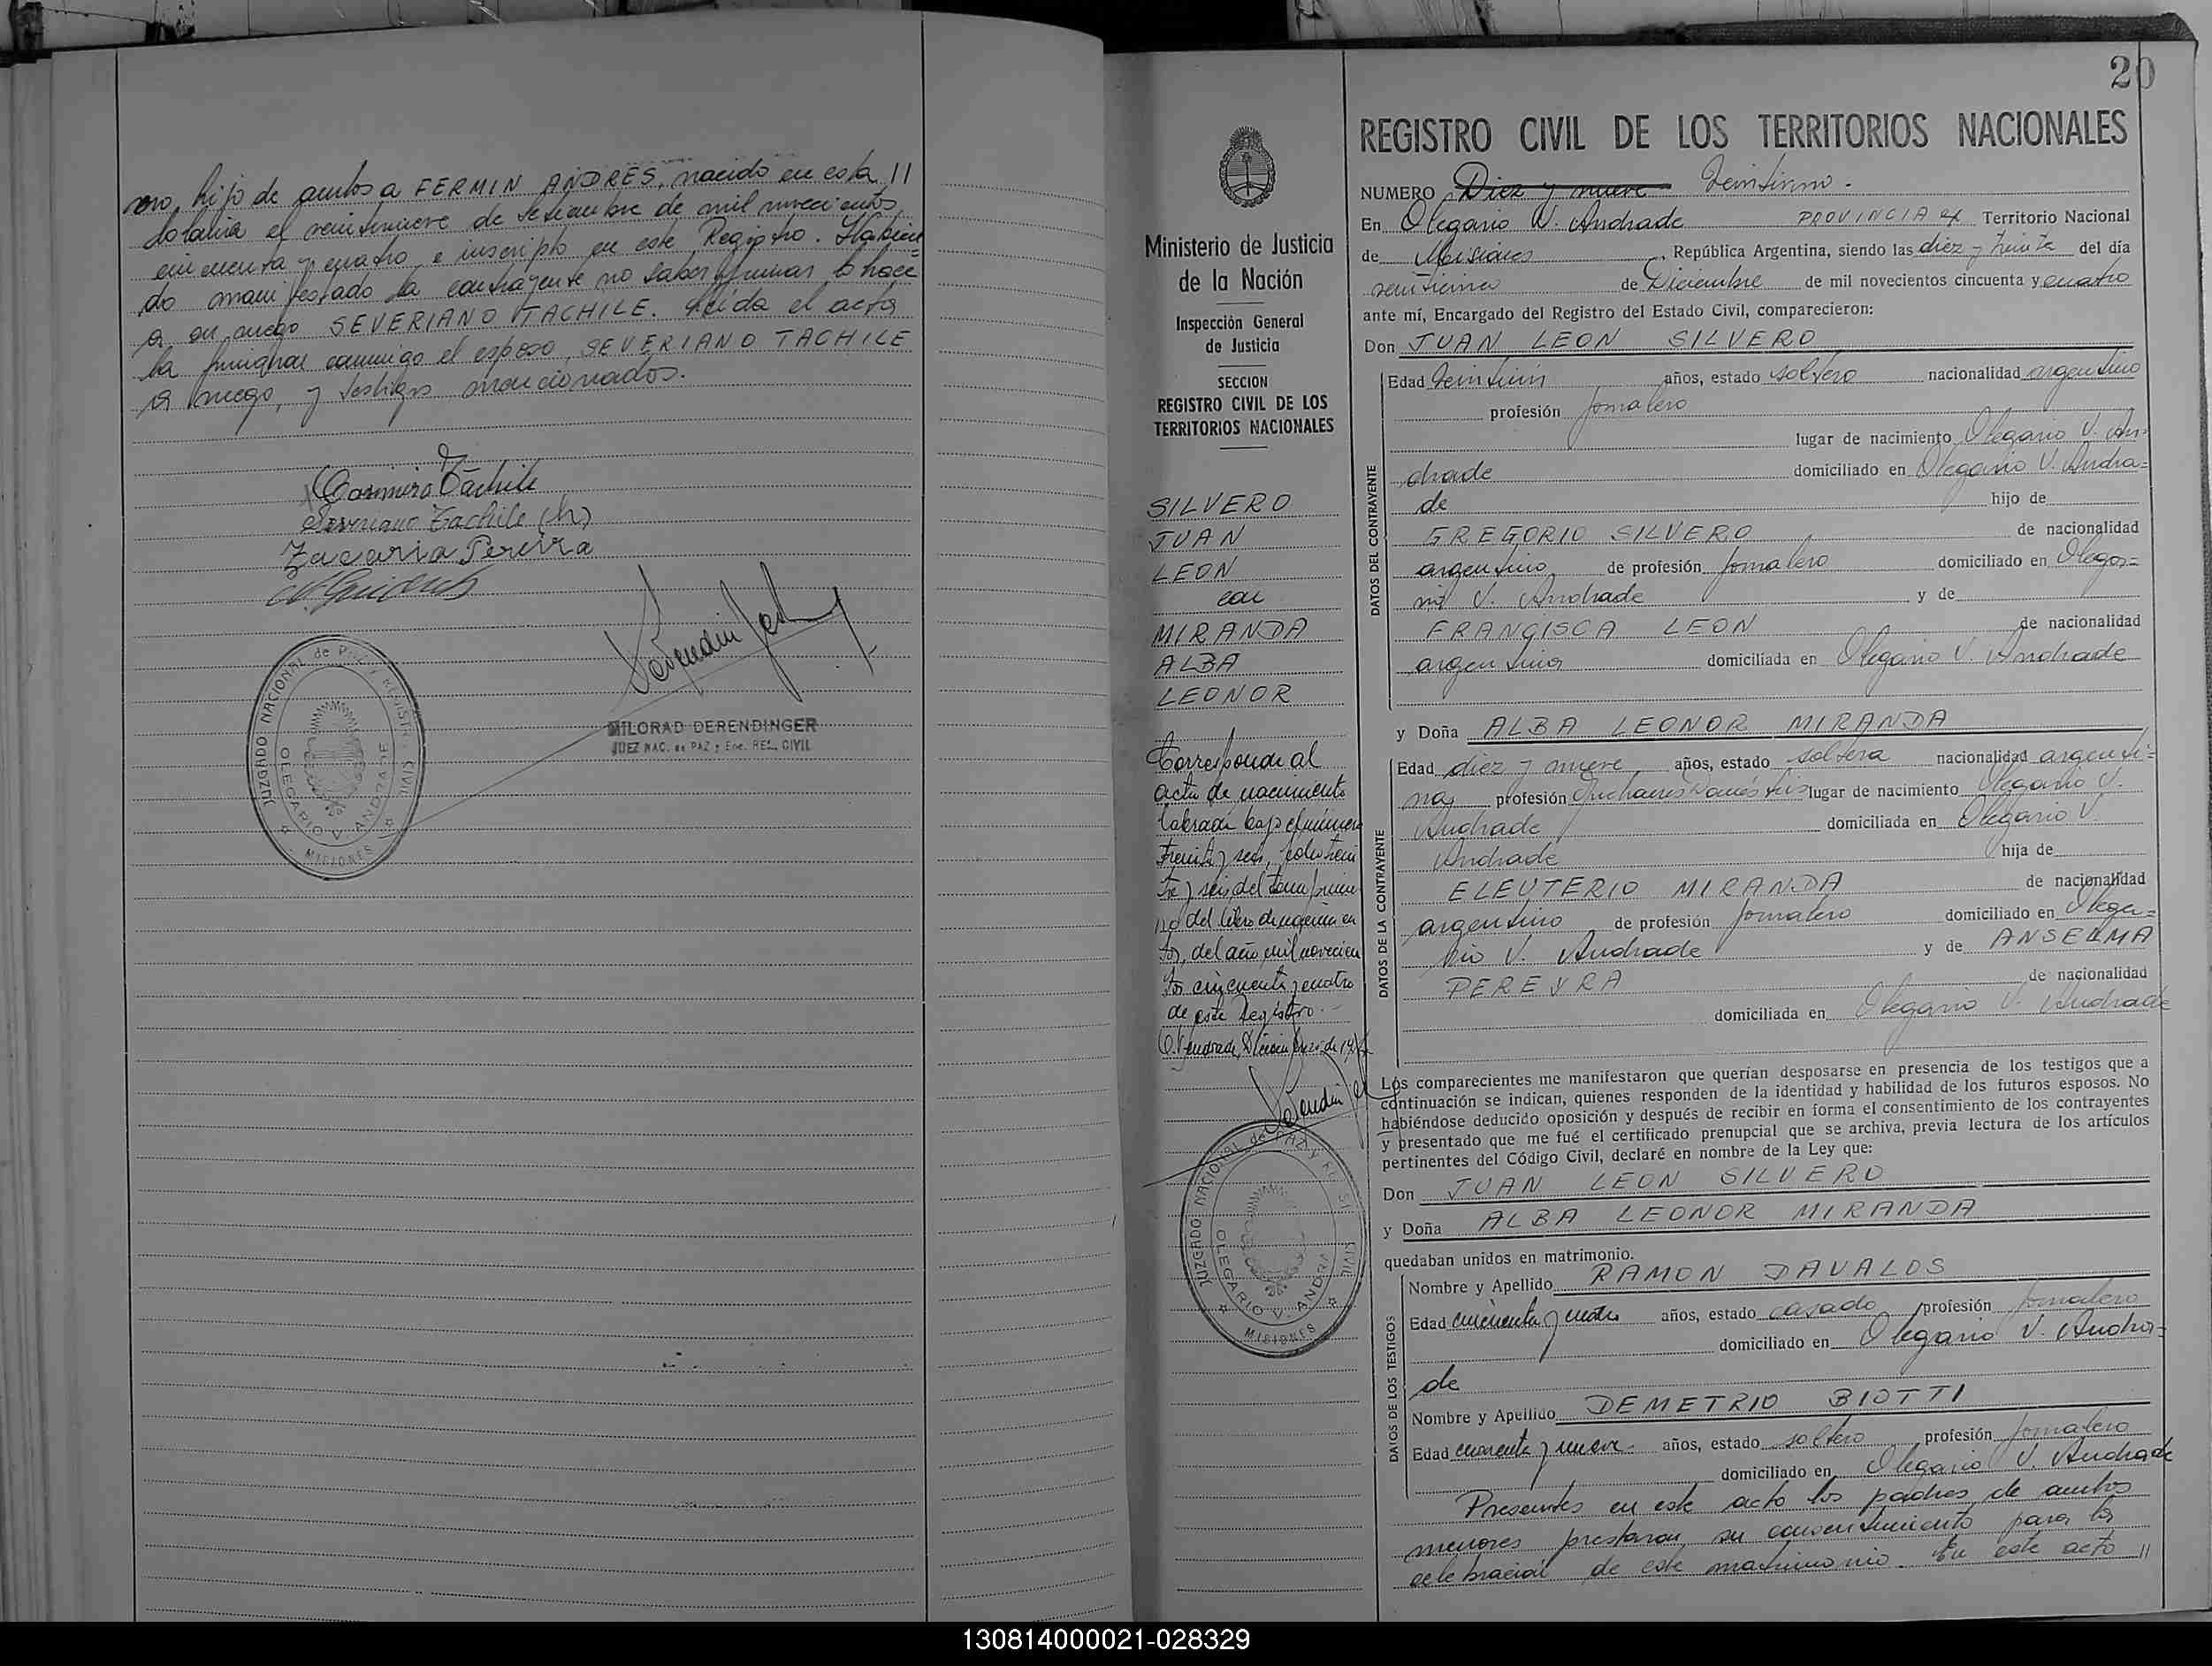 mo, hijo de ambos a FERMIN ANDRÉS, nacido en esta //
el veintinueve de Setiembre de mil novecientos
cincuenta y cuatro e inscripto en este Registro. Habien=
do manifestado la contrayente no saber firmar, lo hace
a su ruego SEVERIANO TACHILE. Leida el acta
la firman conmigo el esposo, SEVERIANO TACHILE
a ruego, y testigos mencionados.
Casimiro Tachile
Severiano Tachile (h)
Zacaria Pereira
JUZGADO NACIONAL de PAZ y REGISTRO CIVIL
OLEGARIO V. ANDRADE
MISIONES
MILORAD DERENDINGER
JUEZ NAC. de PAZ y Enc. REG. CIVIL
20
Ministerio de Justicia
de la Nación
Inspección General
de Justicia
SECCION
REGISTRO CIVIL DE LOS
TERRITORIOS NACIONALES
SILVERO
JUAN
LEON
con
MIRANDA
ALBA
LEONOR
Corresponde al
acta de nacimiento
labrada bajo el número
treinta y seis, folio trein
ta y seis, del tomo prime
ro del libro de nacimien
tos, del año mil novecien
tos cincuenta y cuatro
de este Registro.-
JUZGADO NACIONAL de PAZ y
OLEGARIO V. ANDRA
CIVIL
MISIONES
REGISTRO CIVIL DE LOS TERRITORIOS NACIONALES
NUMERO Diez y nueve Veintiuno.-
En Olegario V. Andrade PROVINCIA ex Territorio Nacional
de Misiones, República Argentina, siendo las diez y treinta del día
de Diciembre de mil novecientos cincuenta y cuatro
ante mí, Encargado del Registro del Estado Civil, comparecieron:
Don JUAN LEON SILVERO
DATOS DEL CONTRAYENTE
Edad veintiún años, estado soltero nacionalidad argentino
profesión jornalero
lugar de nacimiento Olegario V. An=
drade domiciliado en Olegario V. Andra=
de hijo de
GREGORIO SILVERO de nacionalidad
argentino de profesión jornalero domiciliado en Olega=
rio V. Andrade y de
FRANCISCA LEON de nacionalidad
argentina domiciliada en Olegario V. Andrade
y Doña ALBA LEONOR MIRANDA
DATOS DE LA CONTRAYENTE
Edad diez y nueve años, estado soltera nacionalidad argenti=
na profesión Quehaceres Domésticos lugar de nacimiento Olegario V.
Andrade domiciliada en Olegario V.
Andrade hija de
ELEUTERIO MIRANDA de nacionalidad
argentino de profesión jornalero domiciliado en Olega=
rio V. Andrade y de ANSELMA
PEREYRA de nacionalidad
domiciliada en Olegario V. Andrade
Los comparecientes me manifestaron que querían desposarse en presencia de los testigos que a
continuación se indican, quienes responden de la identidad y habilidad de los futuros esposos. No
habiéndose deducido oposición y después de recibir en forma el consentimiento de los contrayentes
y presentado que me fué el certificado prenupcial que se archiva, previa lectura de los artículos
pertinentes del Código Civil, declaré en nombre de la Ley que:
Don JUAN LEON SILVERO
y Doña ALBA LEONOR MIRANDA
quedaban unidos en matrimonio.
DATOS DE LOS TESTIGOS
Nombre y Apellido RAMON DAVALOS
Edad cincuenta y cuatro años, estado casado profesión jornalero
domiciliado en Olegario V. Andra=
de
Nombre y Apellido DEMETRIO BIOTTI
Edad cuarenta y nueve.- años, estado soltero profesión jornalero
domiciliado en Olegario V. Andrade
Presentes en este acto los padres de ambos
menores prestaron su consentimiento para la
celebración de este matrimonio. En este acto //
130814000021-028329